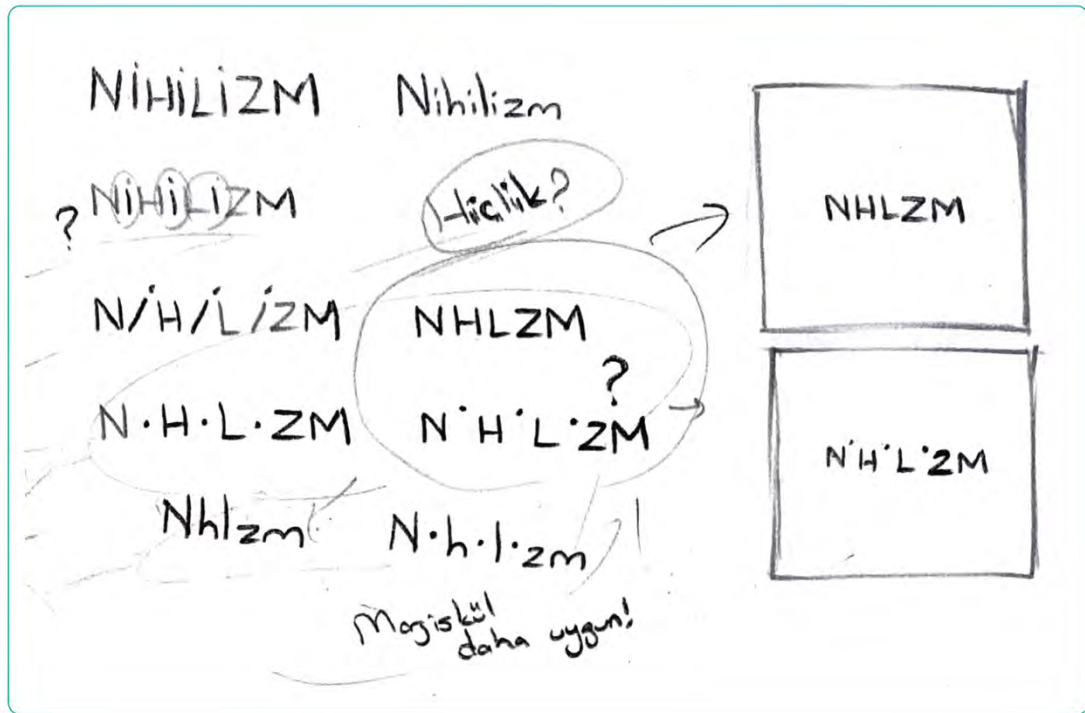 NİHİLİZM Nihilizm
? NİHİLİZM Hiçlik?
N/İH/İL/İZM NHLZM
?
N·H·L·ZM N˙H˙L˙ZM
Nhlzm N·h·l·zm
Majiskül
daha uygun!
NHLZM
N˙H˙L˙ZM